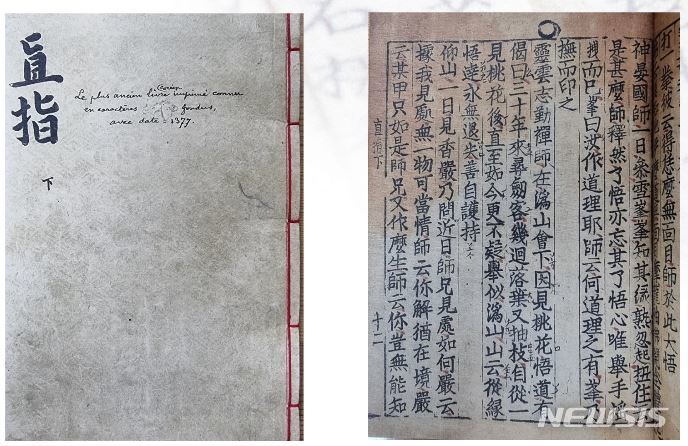 直指
下
Coréen
Le plus ancien livre imprimé connu
en caractères fondus,
avec date = 1377.
云得恁麼無面目師於此大悟
神晏國師一日叅雪峯峯知其緣熟忽起搊住云
是甚麼師釋然了悟亦忘其了悟心唯舉手搖
拽而已峯曰汝作道理耶師云何道理之有峯
撫而印之
靈雲志勤禪師在潙山會下因見桃花悟道有
偈曰三十年來尋劒客幾迴落葉又抽枝自從一
見桃花後直至如今更不疑舉似潙山山云從緣
悟達永無退失善自護持
仰山一日見香嚴乃問近日師兄見處如何嚴云
據我見處無一物可當情師云你解猶在境嚴
云某甲只如是師兄又作麼生師云你豈無能知
直指下
十二
NEWSIS